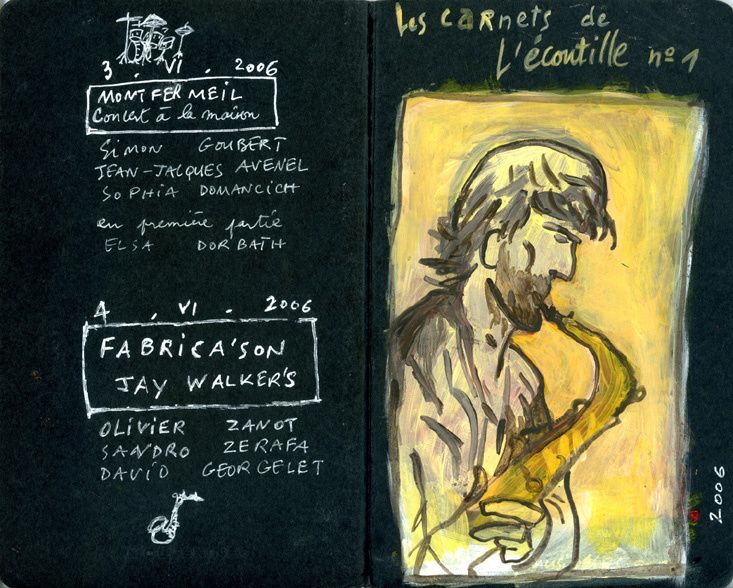 3 . VI . 2006
MONTFERMEIL
Concert à la maison
SIMON GOUBERT
JEAN-JACQUES AVENEL
SOPHIA DOMANCICH
en première partie
ELSA DORBATH
4 . VI . 2006
FABRICA'SON
JAY WALKER'S
OLIVIER ZANOT
SANDRO ZERAFA
DAVID GEORGELET
Les CARNets de
L'écoutille n° 1
2006